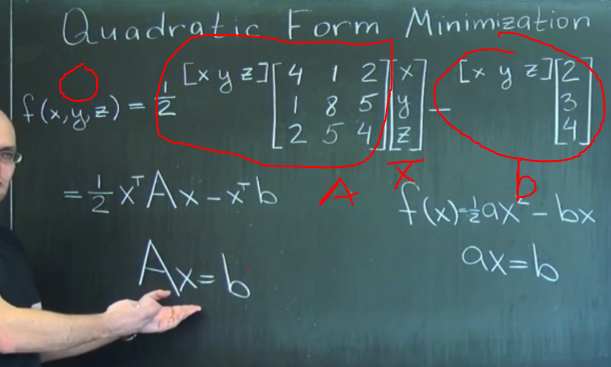 Quadratic Form Minimization
f(x,y,z) = 1/2 [x y z] [4 1 2; 1 8 5; 2 5 4] [x; y; z] - [x y z] [2; 3; 4]
A x b
= 1/2 xᵀAx - xᵀb
f(x)=1/2ax² - bx
Ax=b
ax=b